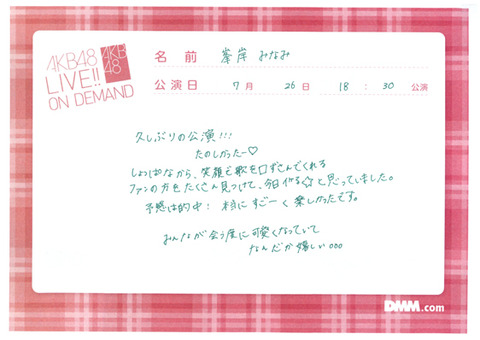 AKB48
LIVE!!
ON DEMAND
AKB
48
名前 峯岸 みなみ
公演日 7月 26日 18:30 公演
久しぶりの公演!!!
たのしかったー♡
しょっぱなから、笑顔で歌を口ずさんでくれる
ファンの方をたくさん見つけて、今日イケる☆と思っていました。
予感は的中! 本当にすごーく楽しかったです。
みんなが会う度に可愛くなっていて
なんだか嬉しい。。。
DMM.com